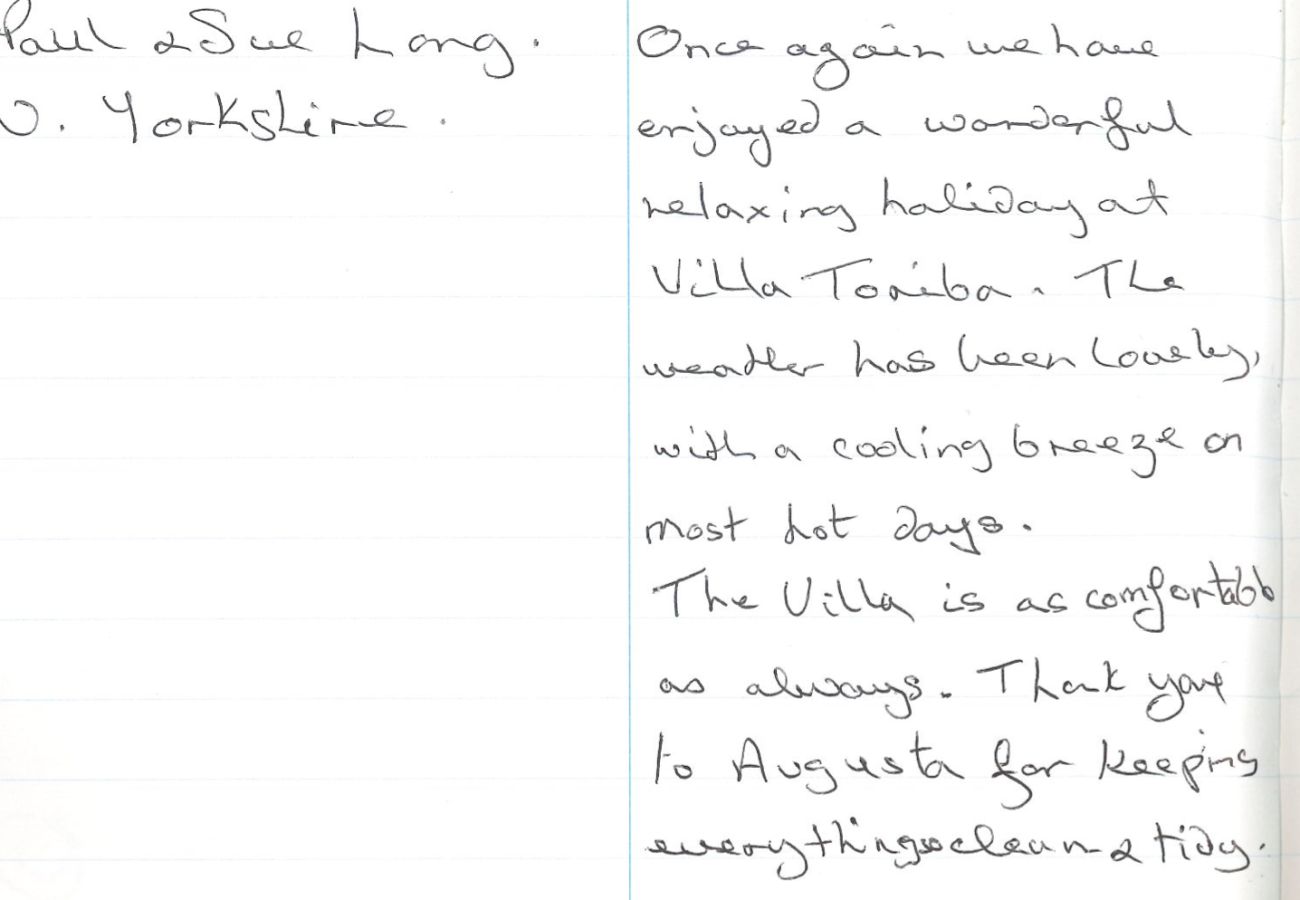 Paul & Sue Long.
Yorkshire.
Once again we have
enjoyed a wonderful
relaxing holiday at
Villa Toriba. The
weather has been lovely,
with a cooling breeze on
most hot days.
The Villa is as comfortable
as always. Thank you
to Augusta for keeping
everything so clean & tidy.